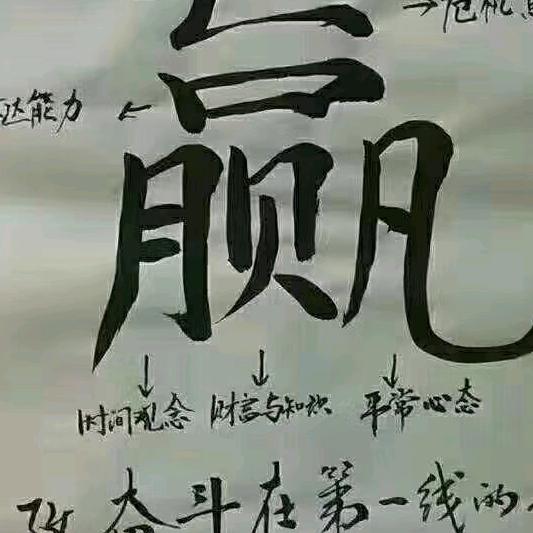 危机
达能力
赢
时间观念 财富与知识 平常心态
致奋斗在第一线的